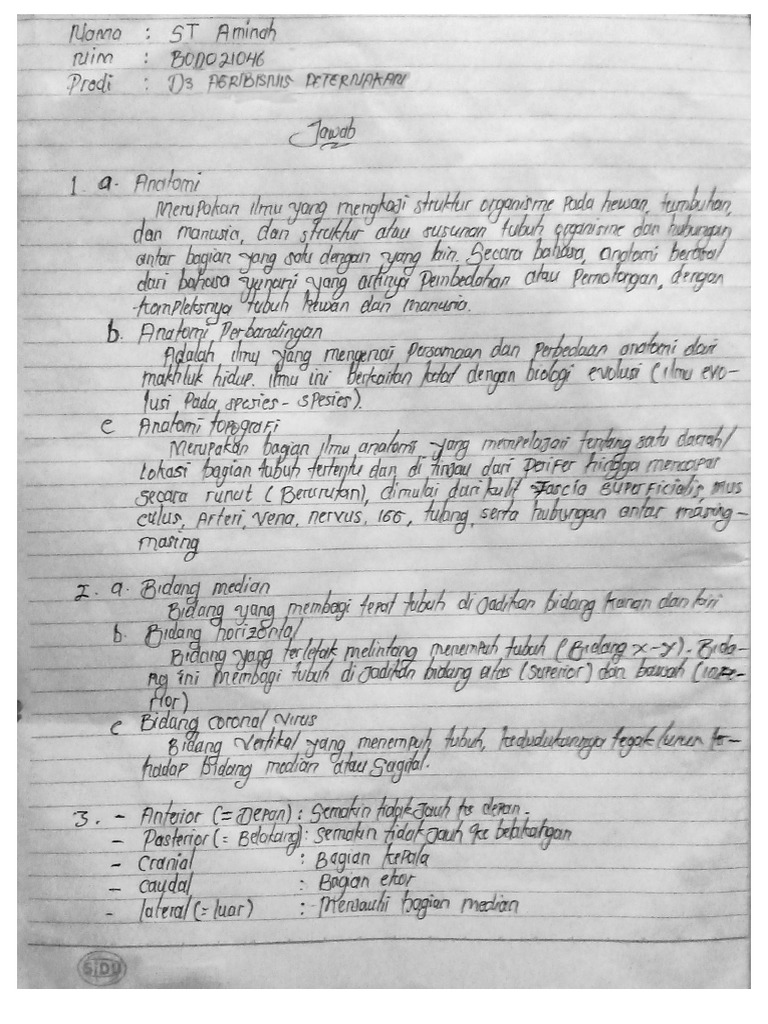 Nama : ST Aminah
Nim : BODO21046
Prodi : D3 AGRIBISNIS PETERNAKAN
Jawab
1. a. Anatomi
Merupakan ilmu yang mengkaji struktur organisme pada hewan, tumbuhan,
dan manusia, dan struktur atau susunan tubuh organisme dan hubungan
antar bagian yang satu dengan yang lain. Secara bahasa, anatomi berasal
dari bahasa yunani yang artinya Pembedahan atau Pemotongan, dengan
kompleksnya tubuh hewan dan manusia.
b. Anatomi Perbandingan
Adalah ilmu yang mengenai Persamaan dan Perbedaan anatomi dari
makhluk hidup. ilmu ini berkaitan dengan biologi evolusi (ilmu evo-
lusi Pada spesies - spesies).
c Anatomi topografi
Merupakan bagian ilmu anatomi yang mempelajari tentang satu daerah/
lokasi bagian tubuh tertentu dan di tinjau dari Perifer hingga mencapai
secara runut (Berurutan), dimulai dari kulit Fascia superficialis, mus
culus, Arteri, vena, nervus, 166, tulang, serta hubungan antar masing-
masing
2. a. Bidang median
Bidang yang membagi tepat tubuh di jadikan bidang kanan dan kiri
b. Bidang horizontal
Bidang yang terletak melintang menempuh tubuh (Bidang x-y). Bida-
ng ini membagi tubuh di jadikan bidang atas (superior) dan bawah
rior)
c Bidang coronal virus
Bidang vertikal yang menempuh tubuh, kedudukannya tegak lurus te-
hadap bidang median atau sagital.
3. - Anterior (= Depan) : Semakin tidak jauh ke depan.
- Pasterior (= Belakang) : semakin tidak jauh ke belakangan
- Cranial : Bagian kepala
- caudal : Bagian ekor
- lateral (= luar) : Menjauhi bagian median
SIDU